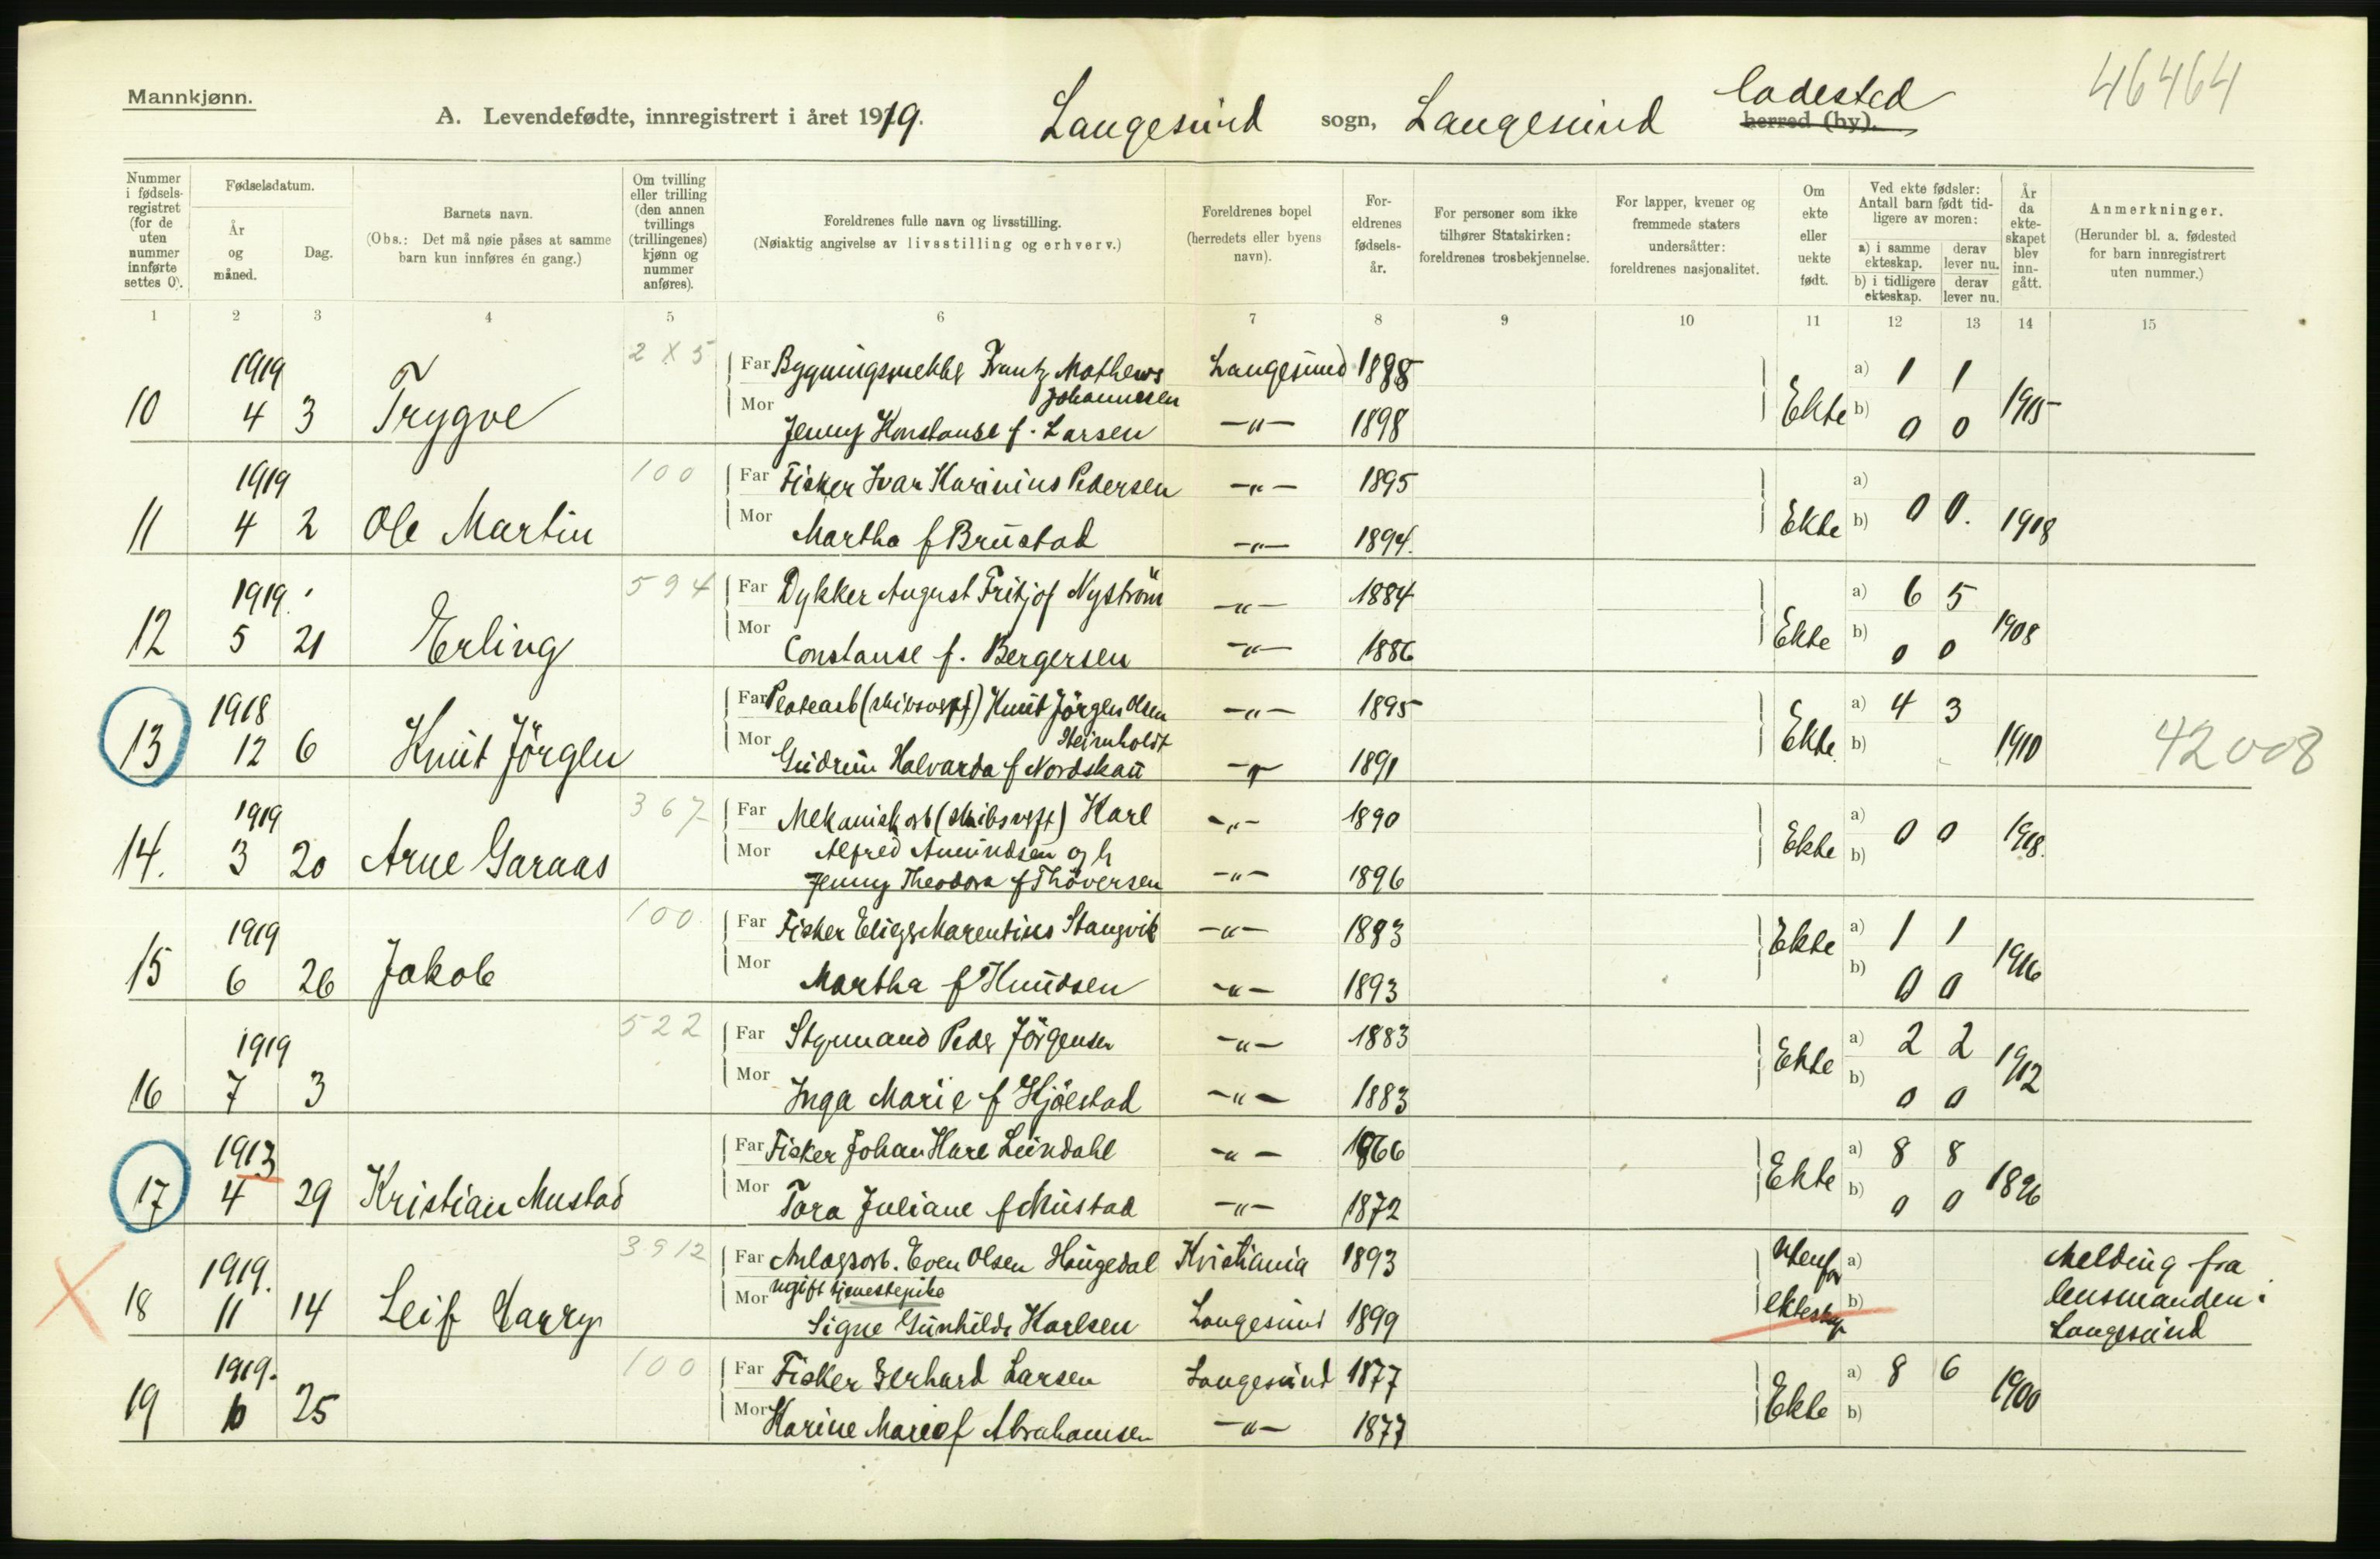 Mannkjønn.
A. Levendefødte, innregistrert i året 1919. Langesund sogn, Langesund ladested herred (by).
46464
Nummer i fødselsregistret (for de uten nummer innførte settes 0).
Fødselsdatum.
År og måned.
Dag.
Barnets navn.
(Obs.: Det må nøie påses at samme barn kun innføres én gang.)
Om tvilling eller trilling (den annen tvillings (trillingenes) kjønn og nummer anføres).
Foreldrenes fulle navn og livsstilling.
(Nøiaktig angivelse av livsstilling og erhverv.)
Foreldrenes bopel (herredets eller byens navn).
Foreldrenes fødselsår.
For personer som ikke tilhører Statskirken: foreldrenes trosbekjennelse.
For lapper, kvener og fremmede staters undersåtter: foreldrenes nasjonalitet.
Om ekte eller uekte født.
Ved ekte fødsler: Antall barn født tidligere av moren:
a) i samme ekteskap. derav lever nu.
b) i tidligere ekteskap. derav lever nu.
År da ekteskapet blev inngått.
Anmerkninger.
(Herunder bl. a. fødested for barn innregistrert uten nummer.)
1 2 3 4 5 6 7 8 9 10 11 12 13 14 15
10 1919 4 3 Trygve 2 X 5
Far Frantz Mathews Johannesen Langesund 1888
Mor Jenny Konstanse f. Larsen —"— 1898
Ekte a) 1 1 b) 0 0 1915
11 1919 4 2 Ole Martin 100
Far Fisker Ivar Karinius Pedersen —"— 1895
Mor Martha f Brustad —"— 1894.
Ekte a) b) 0 0. 1918
12 1919. 5 21 Erling 594
Far Dykker August Fritjof Nyström —"— 1884
Mor Constanse f. Bergersen —"— 1886
Ekte a) 6 5 b) 0 0 1908
13 1918 12 6 Knut Jörgen
Far Platearb (skibsverft) Knut Jörgen Olsen Steinholdt —"— 1895
Mor Gudrun Halvarda f Nordskau —"— 1891
Ekte a) 4 3 b) 1910 42008
14. 1919 3 20 Arne Garaas 367
Far Mekanisk arb (skibsverft) Karl Alfred Amundsen og h —"— 1890
Mor Jenny Theodora f Thöversen —"— 1896
Ekte a) b) 0 0 1918.
15 1919 6 26 Jakob 100
Far Fisker Marentius Stangvik —"— 1893
Mor Martha f Knudsen —"— 1893
Ekte a) 1 1 b) 0 0 1916
16 1919 7 3 522
Far Styrmand Peder Jörgensen —"— 1883
Mor Inga Marie f Kjöestad —"— 1883
Ekte a) 2 2 b) 0 0 1912
17 1913 4 29 Kristian Mustad
Far Fisker Johan Lundahl —"— 1866
Mor Tora Juliane f Mustad —"— 1872
Ekte a) 8 8 b) 0 0 1896
18 1919. 11 14 Leif Harry 3912
Far Anlægsarb. Even Olsen Haugedal Kristiania 1893
Mor ugift tjenestepike Signe Gunhilde Karlsen Langesund 1899
Utenfor ekteskap a) b) Melding fra lensmanden i Langesund
19 1919. 6 25 100
Far Fisker Gerhard Larsen Langesund 1877
Mor Karine Marie f Abrahamsen —"— 1877
Ekte a) 8 6 b) 1900